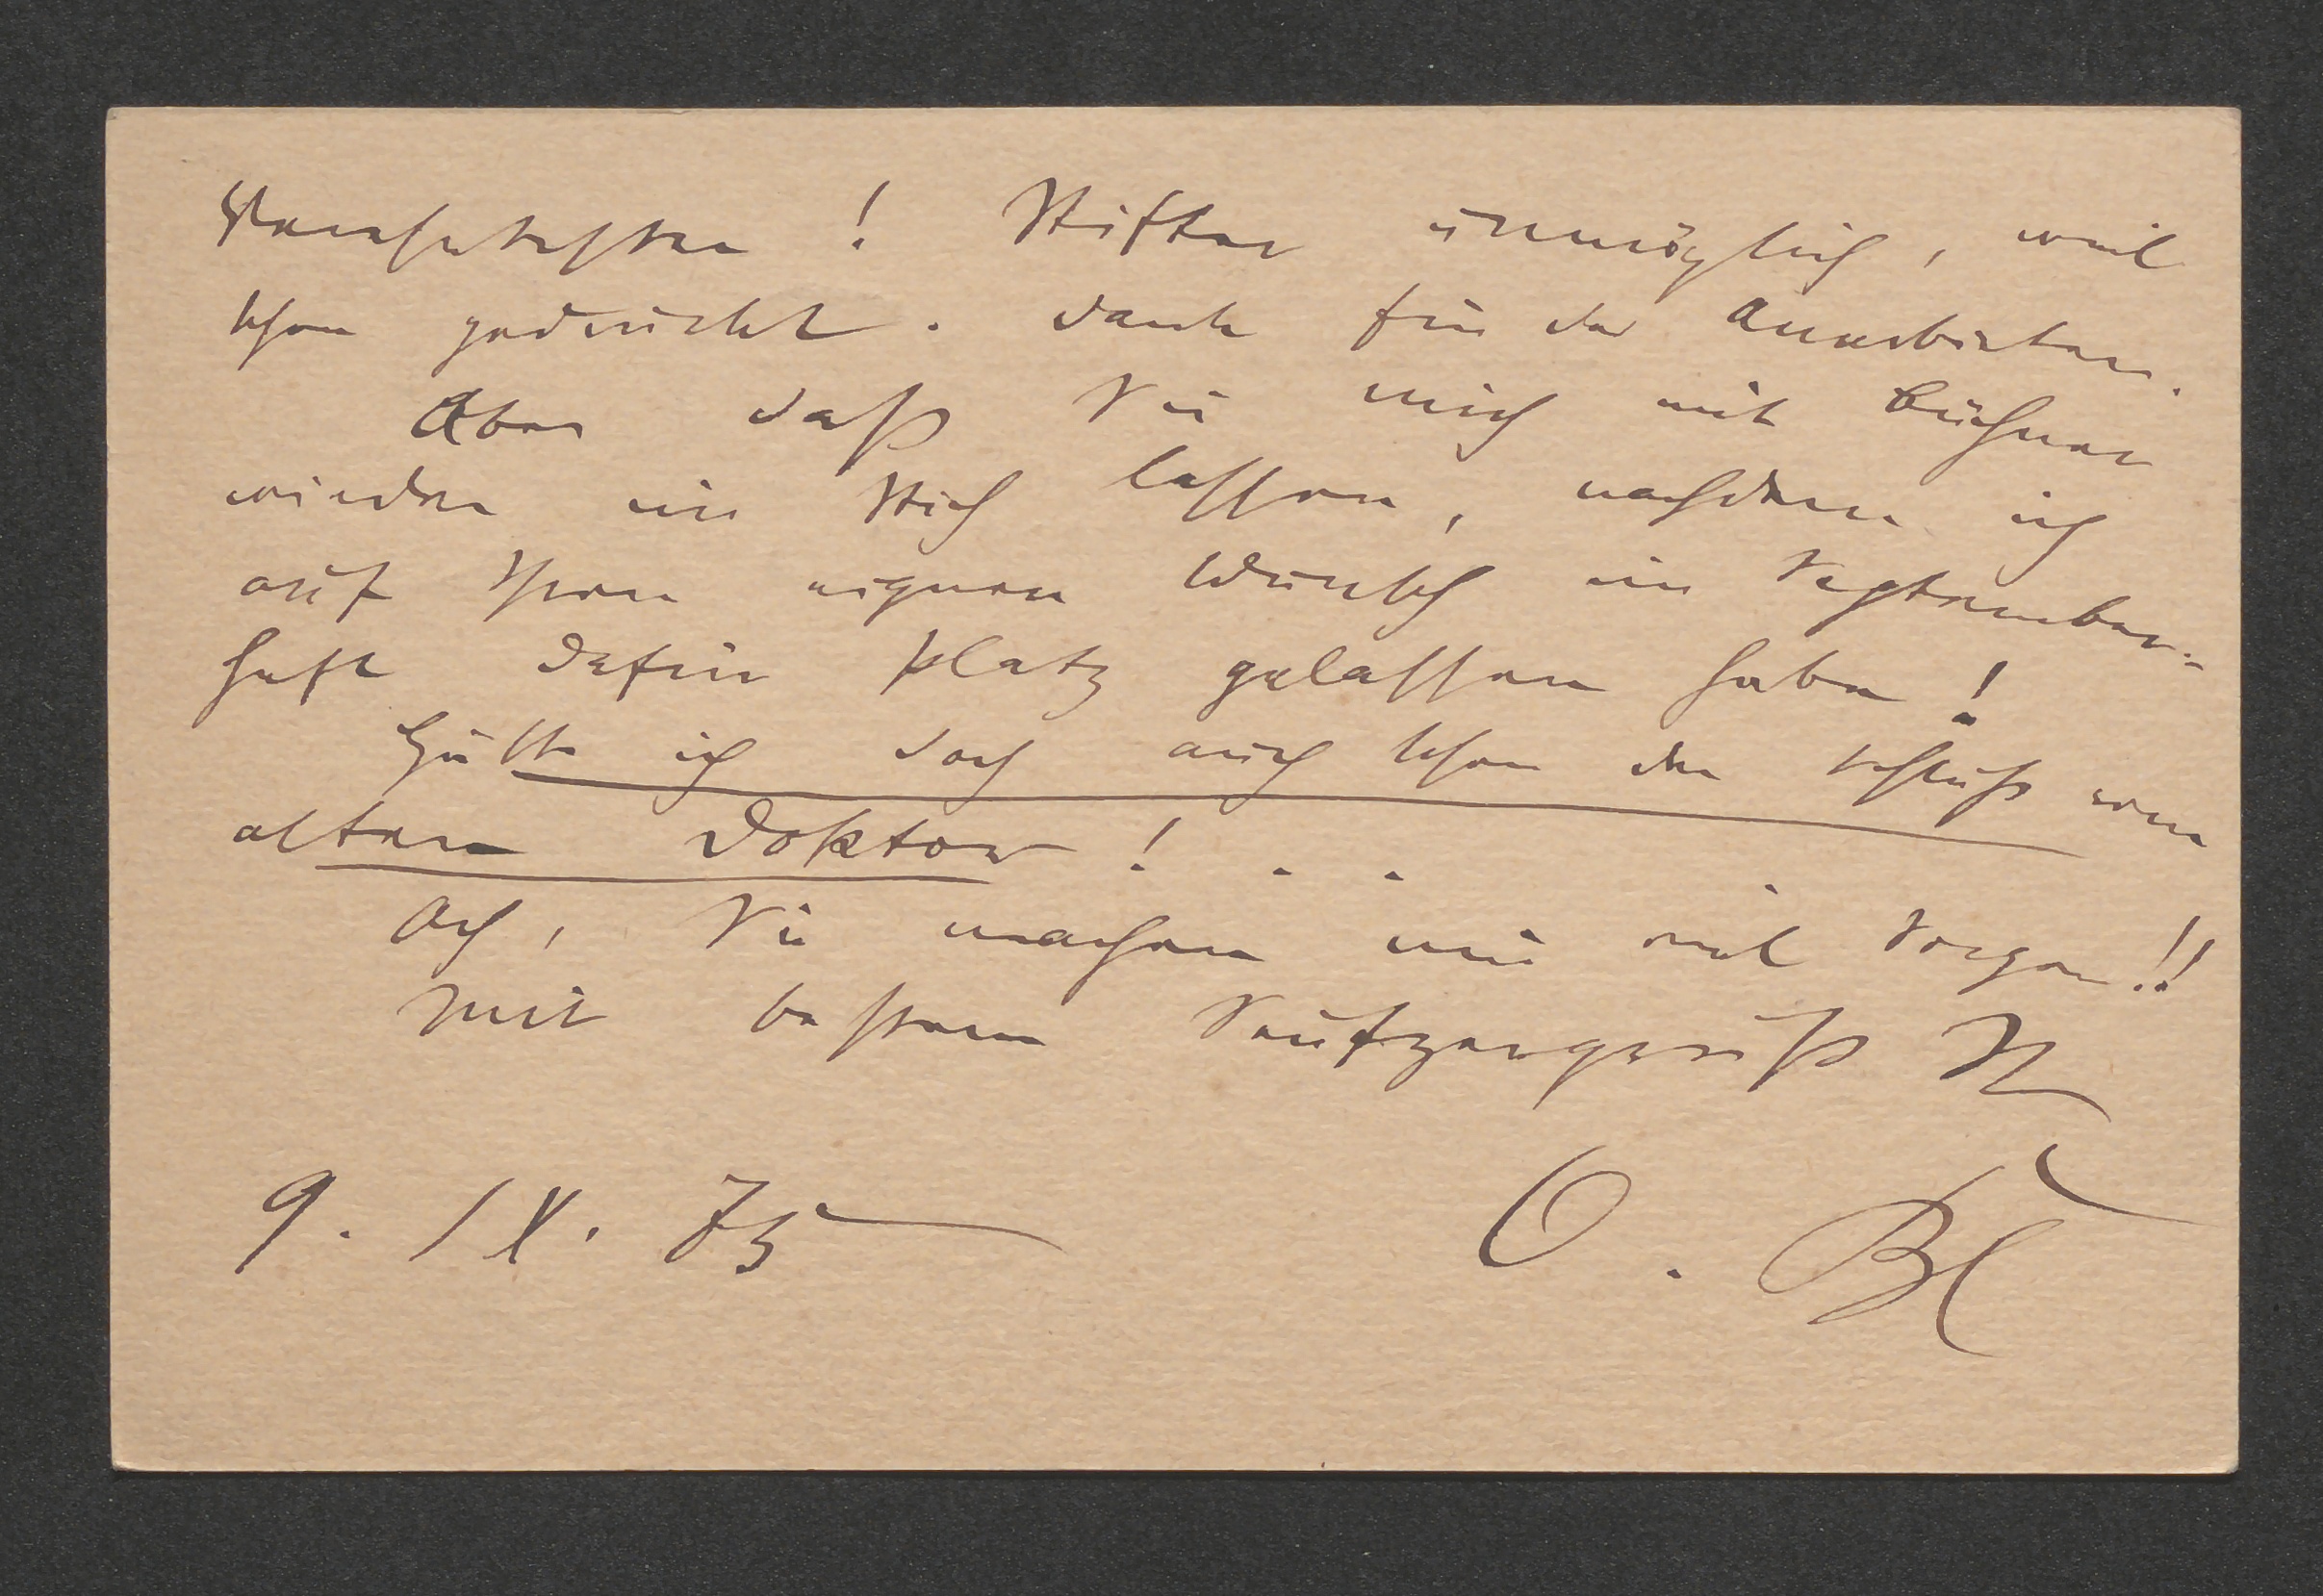 Verehrtester! Stifter unmöglich, weil
schon gedruckt. Dank für das Anerbieten.
Aber daß Sie mich mit Büchner
wieder im Stich lassen, nachdem ich
auf Ihren eignen Wunsch im September-
heft dafür Platz gelassen habe!
Hätte ich doch auch schon den Schluß vom
alten Doktor! . . .
Ach, Sie machen mir viel Sorgen!!
Mit bestem Seufzergruß Ihr
O. Bl
9. IX. 75